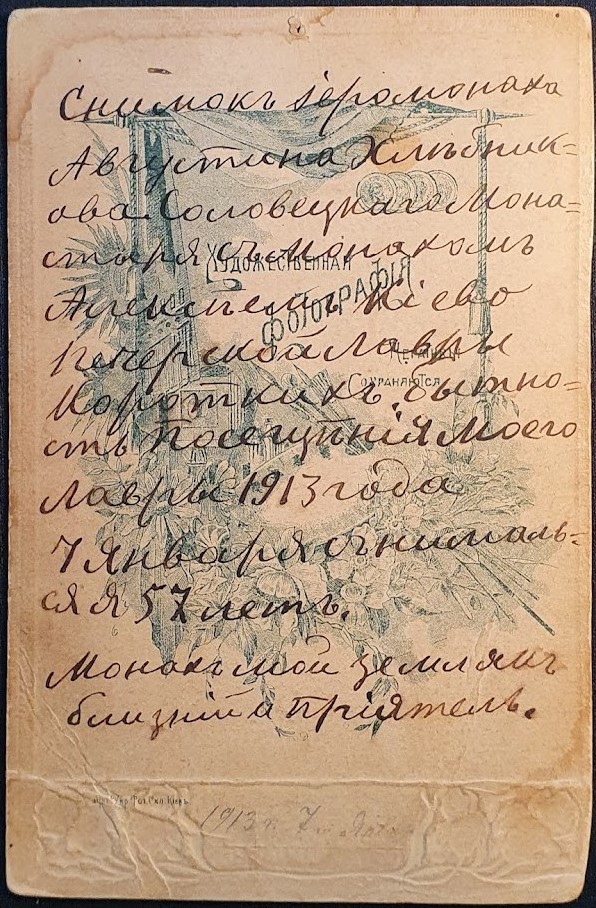 Снимокъ іеромонаха
Августина Хлѣбник=
ова Соловецкаго Мона=
стыря съ монахомъ
Алексѣемъ Кіево
Печерской лавры
Короткихъ. бытно=
сть посещѣнія моего
лавры 1913 года
7 января снималь=
ся я 57 летъ.
Монахъ мой землякъ
близкій и пріятель.
Художественная
Фотографія
Негативы
Сохраняются
Фот. Скл. Кіевъ
1913 г. 7